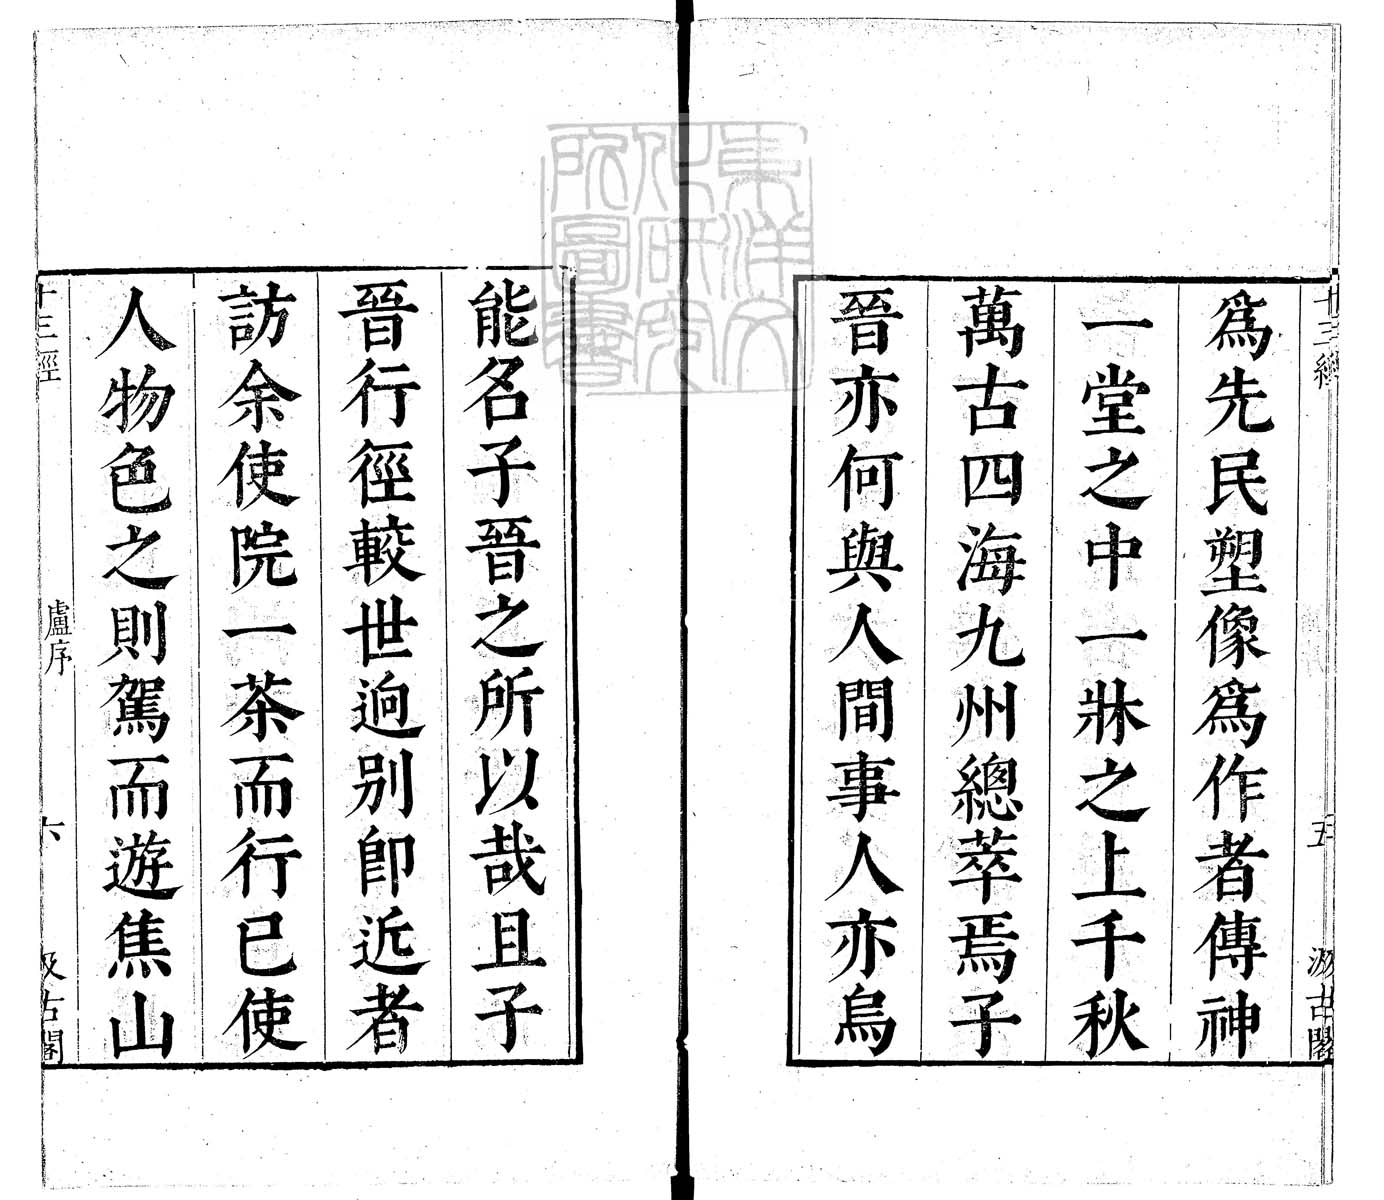 十三經
五
汲古閣
爲先民塑像爲作者傳神
一堂之中一牀之上千秋
萬古四海九州總萃焉子
晉亦何與人間事人亦烏
能名子晉之所以哉且子
晉行徑較世逈別卽近者
訪余使院一茶而行已使
人物色之則駕而遊焦山
十三經
盧序
六
汲古閣
東洋文
化研究
所圖書